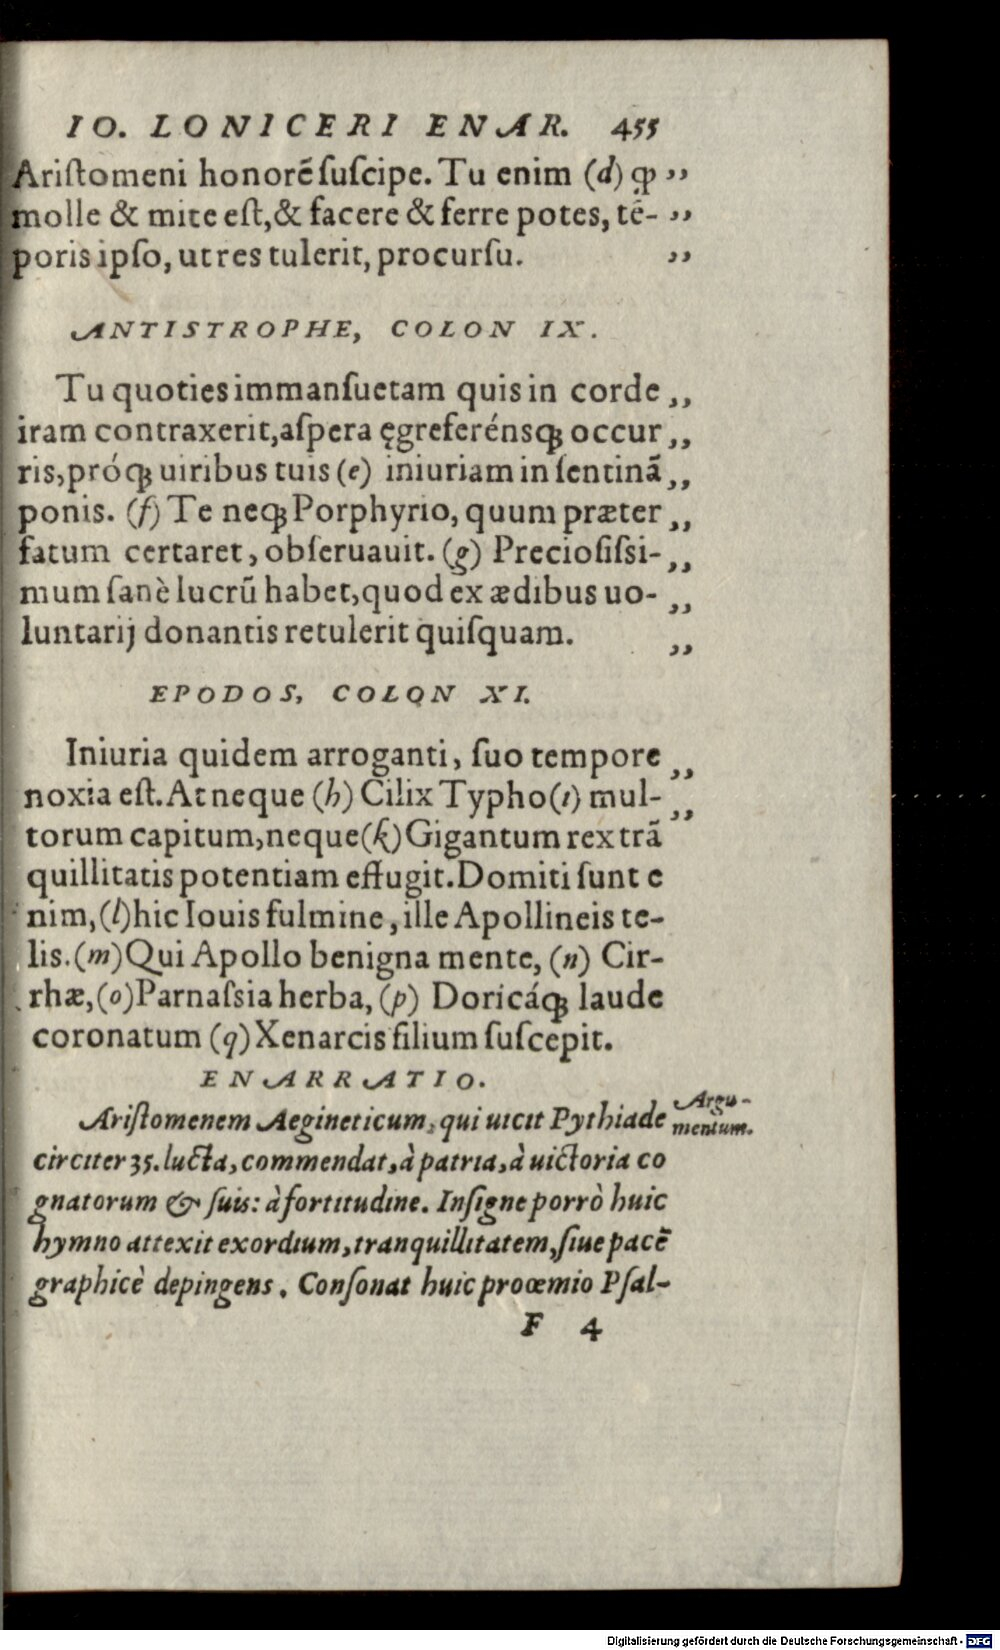 IO. LONICERI ENAR. 455
Ariſtomeni honorē ſuſcipe. Tu enim (d) ꝙ ,,
molle & mite eſt, & facere & ferre potes, tē- ,,
poris ipſo, ut res tulerit, procurſu. ,,
ANTISTROPHE, COLON IX.
Tu quoties immanſuetam quis in corde ,,
iram contraxerit, aſpera ęgreferénsq́ꝫ occur ,,
ris, próqꝫ uiribus tuis (e) iniuriam in ſentinā ,,
ponis. (f) Te neqꝫ Porphyrio, quum præter ,,
fatum certaret, obſeruauit. (g) Precioſiſsi- ,,
mum ſanè lucrū habet, quod ex ædibus uo- ,,
luntarij donantis retulerit quiſquam. ,,
EPODOS, COLON XI.
Iniuria quidem arroganti, ſuo tempore ,,
noxia eſt. At neque (h) Cilix Typho (i) mul- ,,
torum capitum, neque (k) Gigantum rex trā
quillitatis potentiam effugit. Domiti ſunt e
nim, (l) hic Iouis fulmine, ille Apollineis te-
lis. (m) Qui Apollo benigna mente, (n) Cir-
rhæ, (o) Parnaſsia herba, (p) Doricáqꝫ laude
coronatum (q) Xenarcis filium ſuſcepit.
ENARRATIO.
Ariſtomenem Aegineticum, qui uicit Pythiade
Argu-
mentum.
circiter 35. lucta, commendat, à patria, à uictoria co
gnatorum & ſuis: à fortitudine. Inſigne porrò huic
hymno attexit exordium, tranquillitatem, ſiue pacē
graphicè depingens. Conſonat huic proœmio Pſal-
F 4
Digitalisierung gefördert durch die Deutsche Forschungsgemeinschaft - DFG